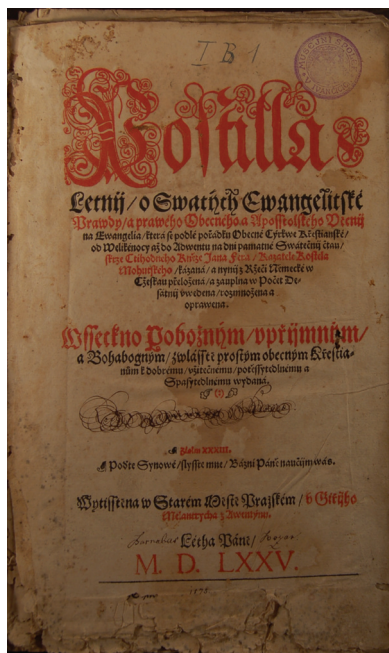 I B 1
Postilla
Letnij / o Swatých Ewangelitské
Prawdy / a prawého Obecného a Aposstolského Včenij
na Ewangelia / kteráž se podlé pořádku Obecné Cýrkwe Křestianské /
od Welikénocy až do Adwentu na dni památné Swátečnij čtau /
skrze Ctihodného Kněze Jana Fera / Kazatele Kostela
Mohutského / kázaná / a nynij z Ržeči Německé w
Cžeskau přeložená / a zauplna w Počet De-
sátnij vwedena / rozmnožena a
oprawena.
Wsseckno Pobožným / vpřijmným
a Bohabogným / zwlásstě prostým obecným Křestia-
nům k dobrému / vžitečnému / potěssytedlnému a
Spasytedlnému wydaná.
(†)
Žalm XXXIII.
Poďte Synowé / slysste mne / Bázni Páně naučijm wás.
Wytisstěna w Starém Městě Pražském / v Giřijho
Melantrycha z Awentýnu.
Létha Páně /
M. D. LXXV.
1575